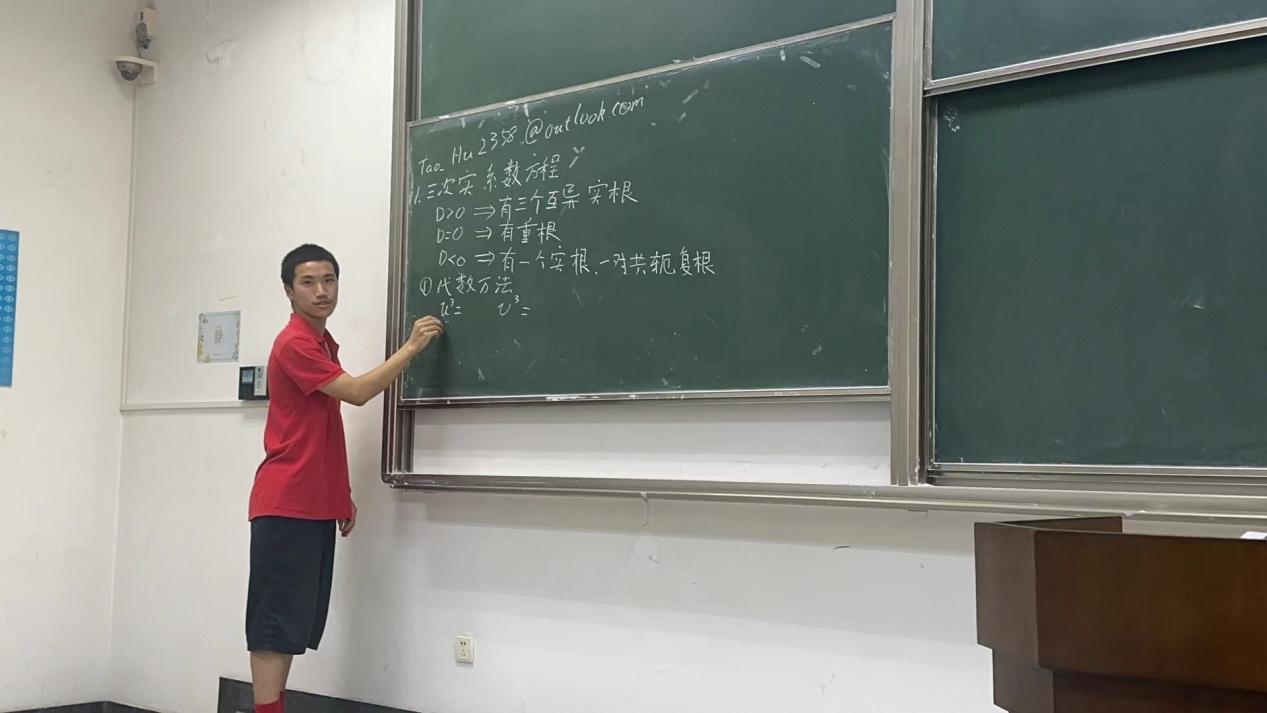 Tao_Hu2358@outlook.com
1.三次实系数方程
D>0 ⇒有三个互异实根
D=0 ⇒有重根
D<0 ⇒有一个实根.一对共轭复根
①代数方法
u³= v³=
静